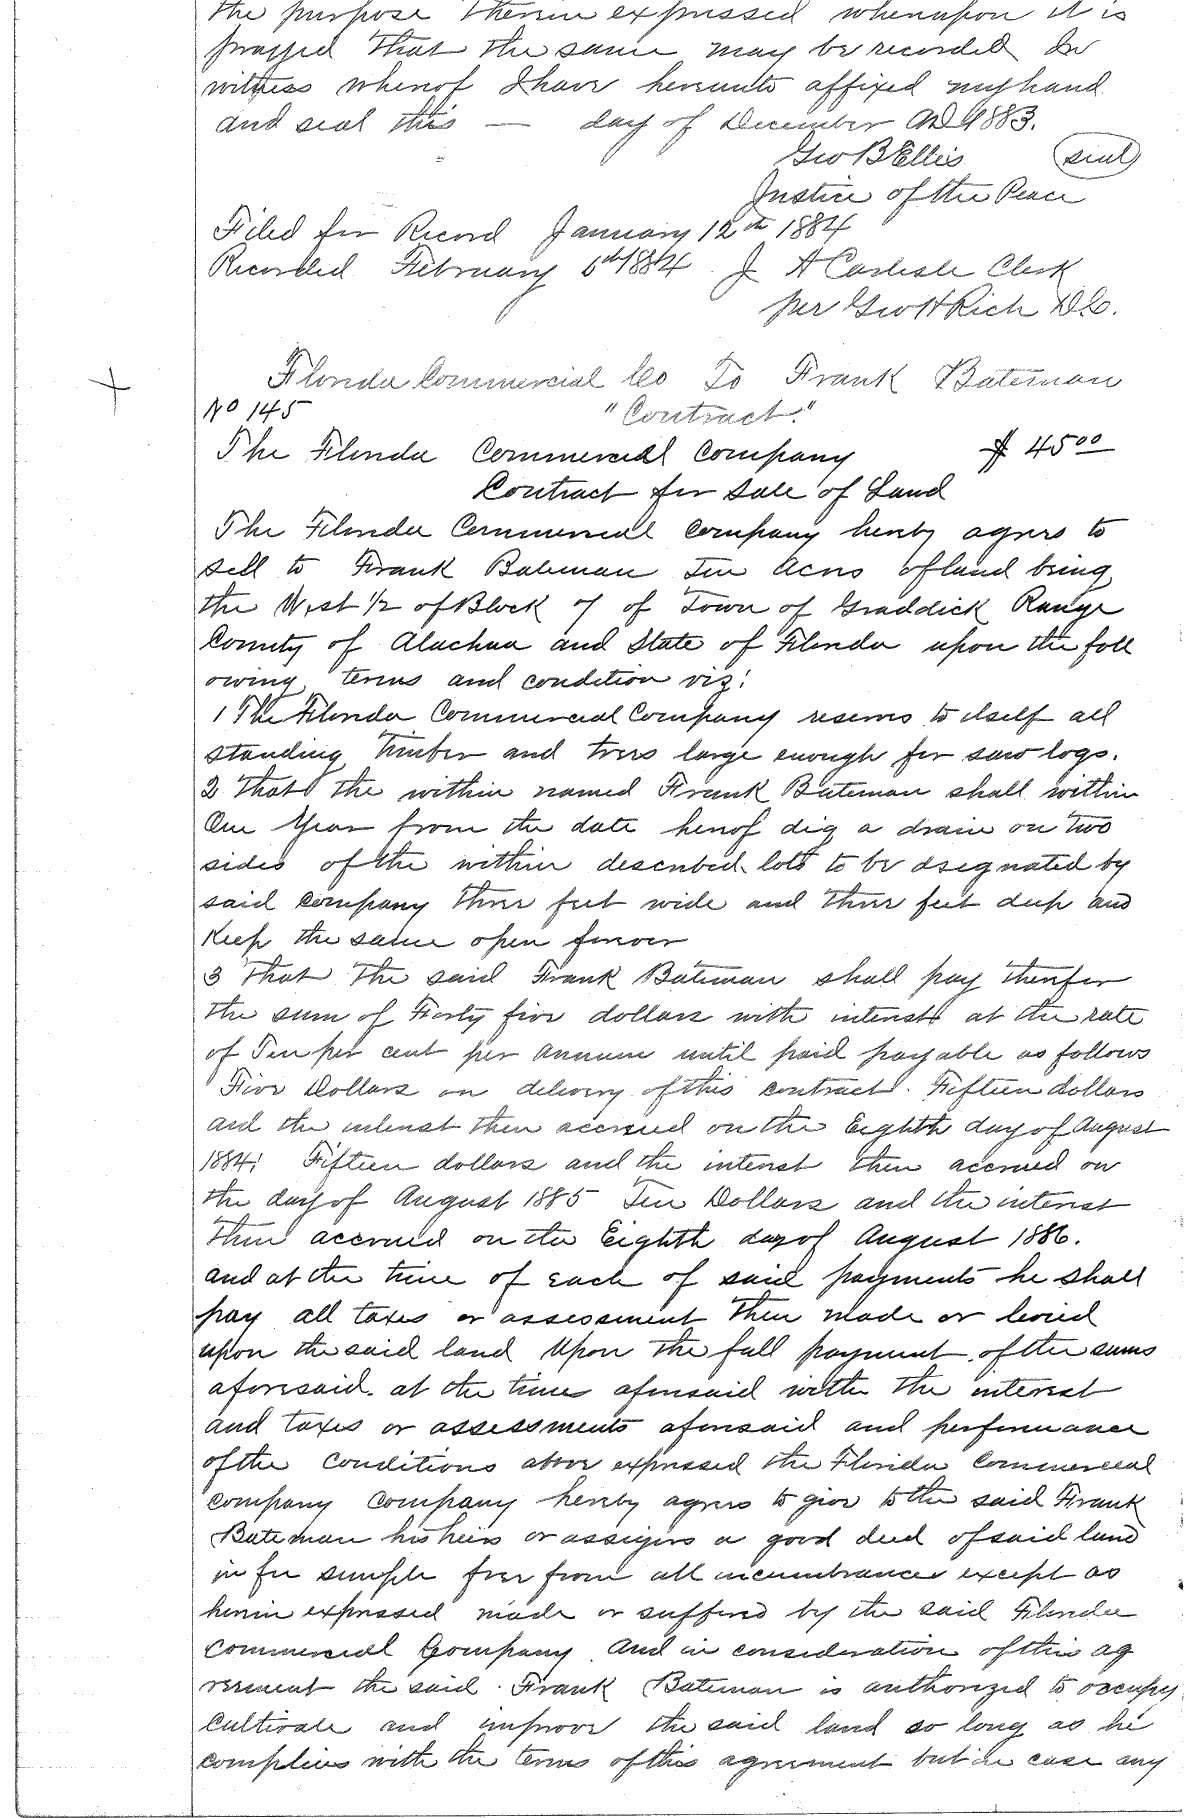 the purpose therein expressed whenupon it is
prayed that the same may be recorded In
witness whereof I have hereunto affixed my hand
and seal this — day of December AD 1883.
Geo B Ellis seal
Justice of the Peace
Filed for Record January 12th 1884
Recorded February 6th 1884 J A Carlisle Clerk
per Geo H Rich D.C.
Florida Commercial Co To Frank Bateman
No 145 "Contract."
The Florida Commercial Company $ 45 00
Contract for Sale of Land
The Florida Commercial Company hereby agrees to
sell to Frank Bateman Ten Acres of land being
the West 1/2 of Block 7 of Town of Graddick Range
County of Alachua and State of Florida upon the foll
owing terms and condition viz:
1 The Florida Commercial Company reserves to itself all
standing Timber and trees large enough for saw logs.
2 That the within named Frank Bateman shall within
One Year from the date hereof dig a drain on two
sides of the within described lots to be dsegnated by
said Company three feet wide and three feet deep and
Keep the same open forever
3 That the said Frank Bateman shall pay therefor
the sum of Forty five dollars with interest at the rate
of Ten per cent per annum until paid payable as follows
Five Dollars on delivery of this contract. Fifteen dollars
and the interest then accrued on the Eighth day of August
1884; Fifteen dollars and the interest then accrued on
the day of August 1885 Ten Dollars and the interest
then accrued on the Eighth day of August 1886.
and at the time of each of said payments he shall
pay all taxes or assessment then made or levied
upon the said land Upon the full payment of the sums
aforesaid. at the times aforesaid with the interest
and taxes or assessments aforesaid and performance
of the Conditions above expressed the Florida Commercial
Company Company hereby agrees to give to the said Frank
Bateman his heirs or assigns a good deed of said land
in fee simple free from all incumbrances except as
herein expressed made or suffered by the said Florida
Commercial Company And in consideration of this ag
reement the said Frank Bateman is authorized to occupy
Cultivate and improve the said land so long as he
complies with the terms of this agreement but in case any